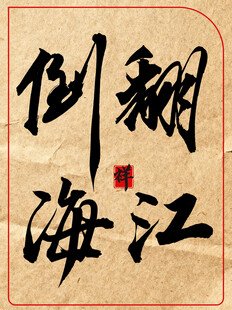 翻江
倒海
祥